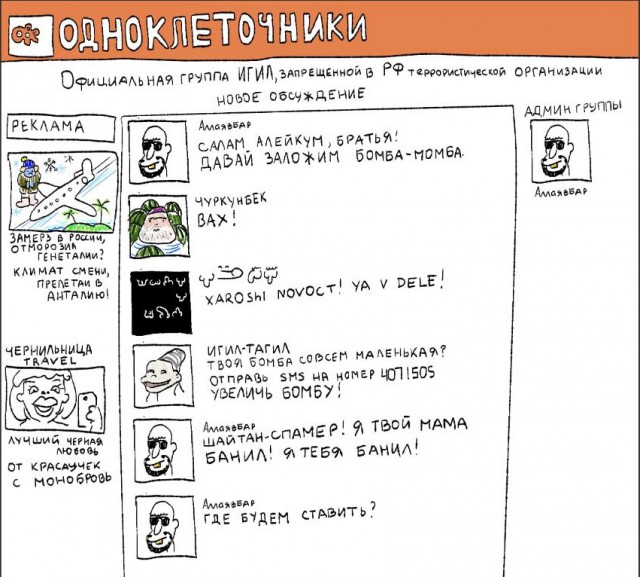 ОДНОКЛЕТОЧНИКИ
ОФИЦИАЛЬНАЯ ГРУППА ИГИЛ, ЗАПРЕЩЕННОЙ В РФ ТЕРРОРИСТИЧЕСКОЙ ОРГАНИЗАЦИИ
НОВОЕ ОБСУЖДЕНИЕ
РЕКЛАМА
ЗАМЕРЗ В РОССИИ,
ОТМОРОЗИЛ
ГЕНЕТАЛИИ?
КЛИМАТ СМЕНИ,
ПРЕЛЕТАИ В
АНТАЛИЮ!
ЧЕРНИЛЬНИЦА
TRAVEL
ЛУЧШИЙ ЧЕРНАЯ
ЛЮБОВЬ
ОТ КРАСАУЧЕК
С МОНОБРОВЬ
АЛЛАЯВБАР
САЛАМ, АЛЕЙКУМ, БРАТЬЯ!
ДАВАЙ ЗАЛОЖИМ БОМБА-МОМБА.
ЧУРКУНБЕК
ВАХ!
XAROSHI NOVOCT! YA V DELE!
ИГИЛ-ТАГИЛ
ТВОЯ БОМБА СОВСЕМ МАЛЕНЬКАЯ?
ОТПРАВЬ SMS НА НОМЕР 4071505
УВЕЛИЧЬ БОМБУ!
АЛЛАЯВБАР
ШАЙТАН-СПАМЕР! Я ТВОЙ МАМА
БАНИЛ! Я ТЕБЯ БАНИЛ!
АЛЛАЯВБАР
ГДЕ БУДЕМ СТАВИТЬ?
АДМИН ГРУППЫ
АЛЛАЯВБАР